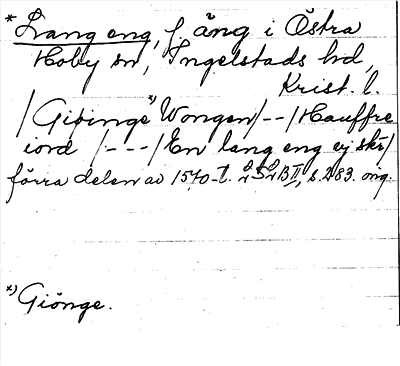 * Lang eng, f. äng i Östra
Hoby sn, Ingelstads hd,
Krist. l.
/Gibinge*) Wongen/--/Hauffre
iord /---/En lang eng ej skr/
förra delen av 1570-t. 2 S 2 B II, s. 283. orig.
*) Giönge.